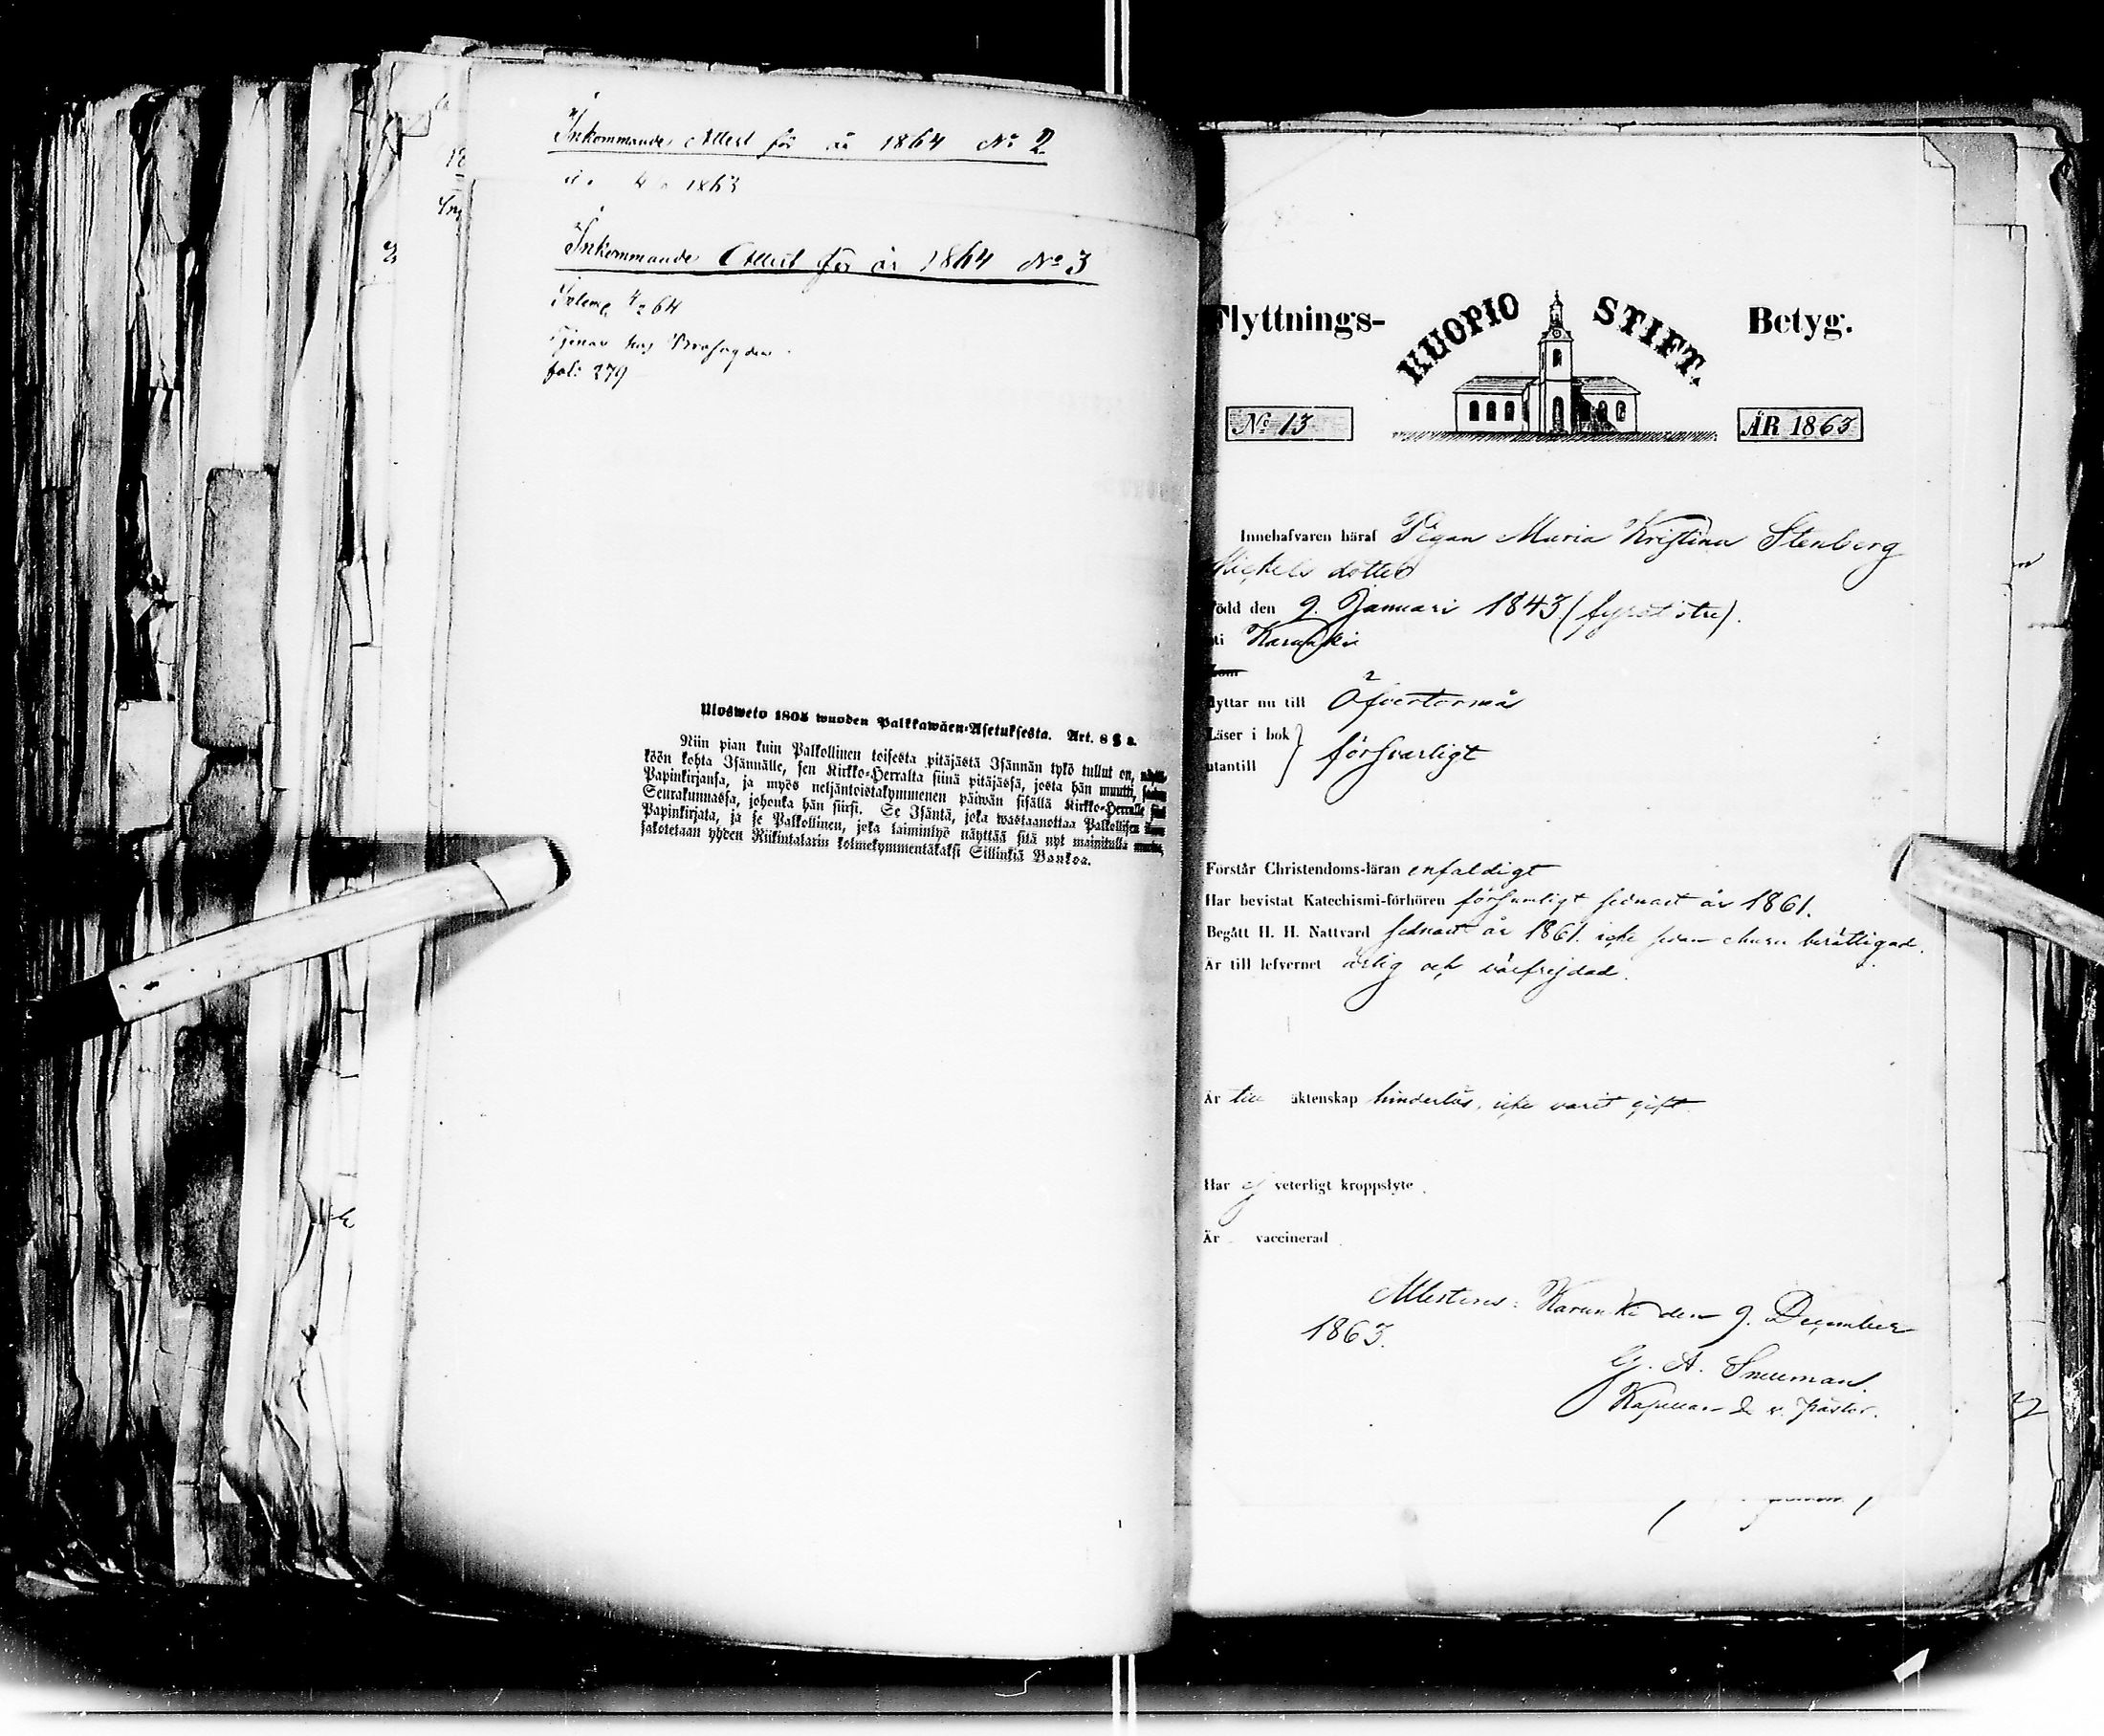 Inkommande Attest för år 1864 No 2
Inkommande Attest för år 1864 No 3
64
Tjenar hos
fol: 279
Ulosweto 1805 wuoden Palkkawäen-Asetuksesta. Art. 8 § 2.
Niin pian kuin Palkollinen toisesta pitäjästä Isännän tykö tullut on,
köön kohta Isännälle, sen Kirkko-Herralta siinä pitäjässä, josta hän muutti,
Papinkirjansa, ja myös neljäntoistakymmenen päiwän sisällä Kirkko-Herralle
Seurakunnassa, johonka hän siirsi. Se Isäntä, joka wastaanottaa Palkollisen
Papinkirjata, ja se Palkollinen, joka laiminlyö näyttää sitä nyt mainitulla
sakotetaan yhden Riikintalarin kolmekymmentäkaksi Sillinkiä Bankoa.
Flyttnings- KUOPIO STIFT. Betyg.
No 13 ÅR 1863
Innehafvaren häraf Pigan Maria Kristina Stenberg
Mickels dotter
född den 9. Januari 1843 (fyratitre).
uti Karunki
flyttar nu till Öfvertorneå
Läser i bok försvarligt
utantill
Förstår Christendoms-läran enfaldigt
Har bevistat Katechismi-förhören försumligt sednast år 1861.
Begått H. H. Nattvard sednast år 1861. icke berättigad.
Är till lefvernet ärlig och välfrejdad.
Är till äktenskap hinderlös, icke varit gift
Har ej veterligt kroppslyte.
Är vaccinerad.
Attesteras: Karunki den 9. December
1863.
G. A. Snellman.
Kapellan & v. pastor.